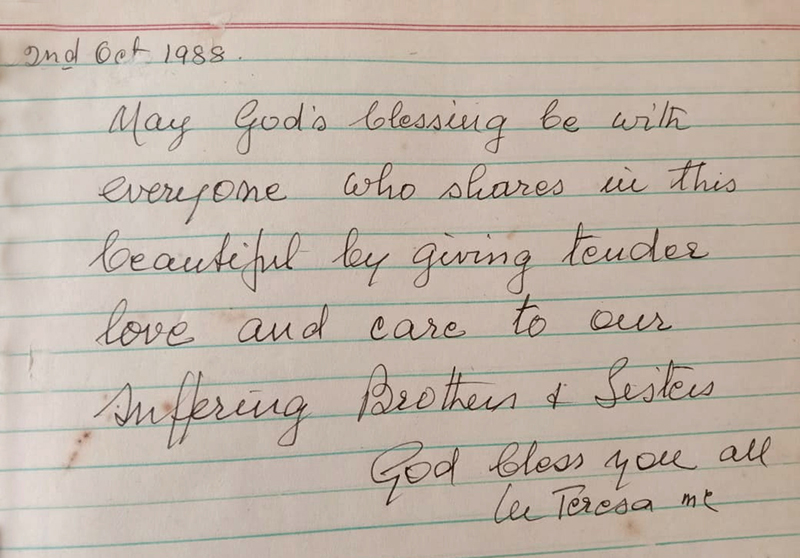 2nd Oct 1988.
May God's blessing be with
everyone who shares in this
beautiful by giving tender
love and care to our
suffering Brothers & Sisters
God bless you all
Teresa mc